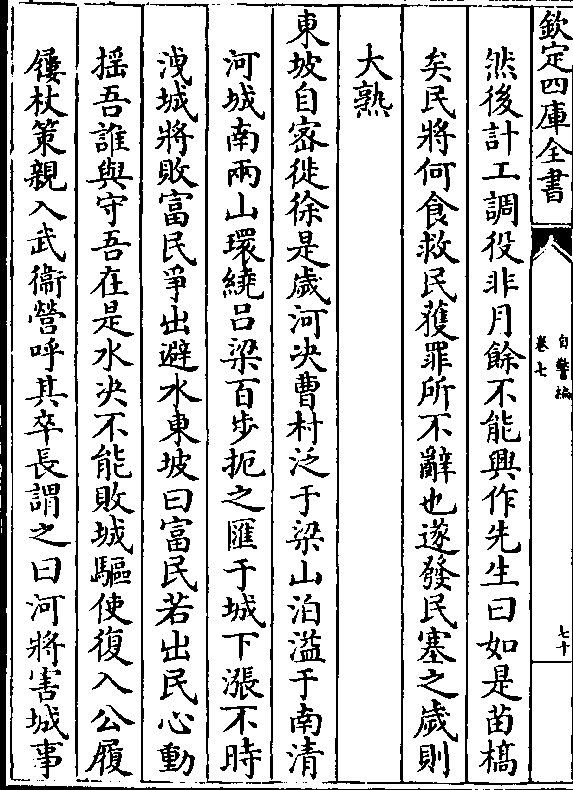 欽定四庫全書
自警編
卷七
七十
然後計工調役非月餘不能興作先生曰如是苗槁
矣民將何食救民獲罪所不辭也遂發民塞之歲則
大熟
東坡自密徙徐是歲河决曹村泛于梁山泊溢于南清
河城南兩山環繞吕梁百步扼之匯于城下漲不時
洩城將敗富民爭出避水東坡曰富民若出民心動
揺吾誰與守吾在是水决不能敗城驅使復入公履
屨杖策親入武衞營呼其卒長謂之曰河將害城事